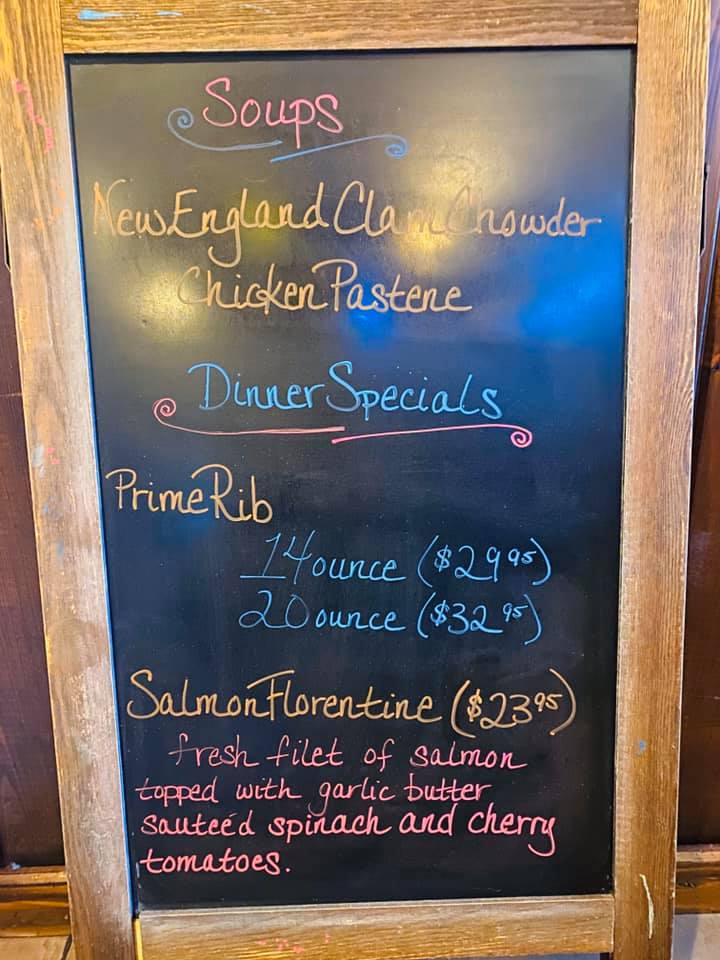 Soups
New England Clam Chowder
Chicken Pastene
Dinner Specials
Prime Rib
14 ounce ($29.95)
20 ounce ($32.95)
Salmon Florentine ($23.95)
fresh filet of salmon
topped with garlic butter
sauteéd spinach and cherry
tomatoes.